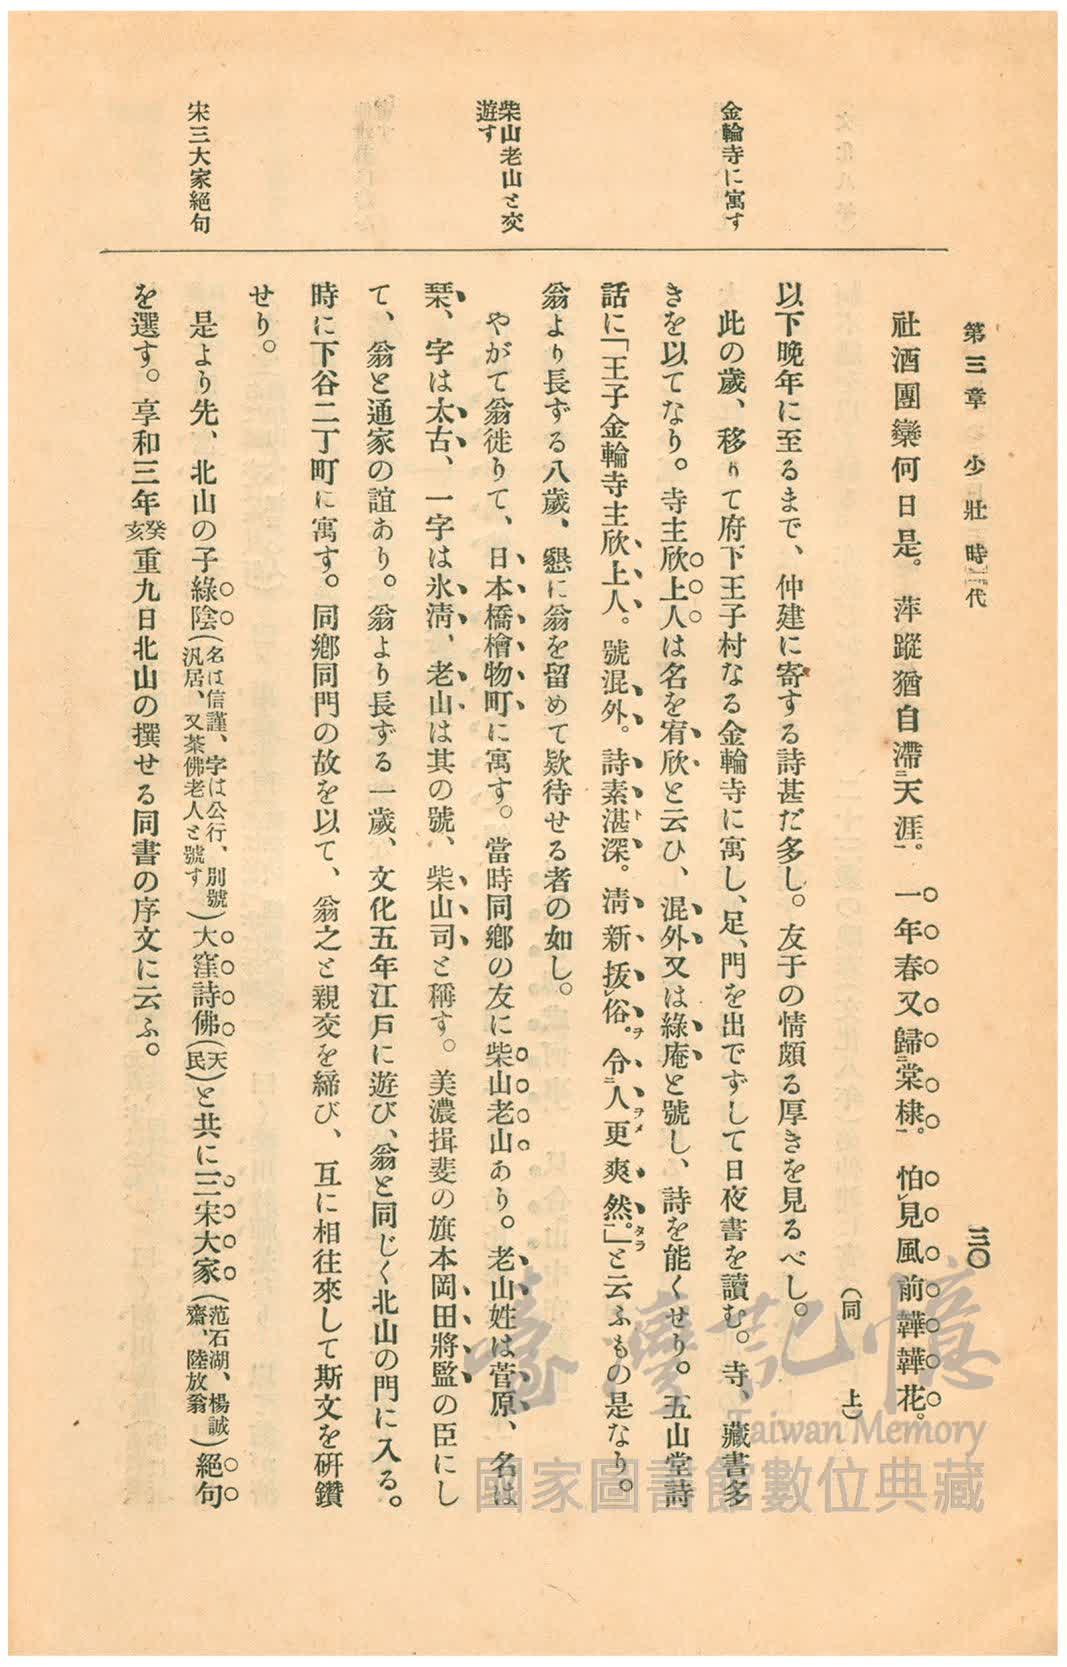 第三章 少壯時代
三〇
社酒團欒何日是。萍蹤猶自滯天涯。一年春又歸棠棣。怕見風前韡韡花。
(同 上)
以下晩年に至るまで、仲建に寄する詩甚だ多し。友于の情頗る厚きを見るべし。
金輪寺に寓す
此の歲、移りて府下王子村なる金輪寺に寓し、足、門を出でずして日夜書を讀む。寺、藏書多
きを以てなり。寺主欣上人は名を宥欣と云ひ、混外又は綠庵と號し、詩を能くせり。五山堂詩
話に「王子金輪寺主欣上人。號混外。詩素湛深。淸新拔俗。令人更爽然。」と云ふもの是なり。
翁より長ずる八歲、懇に翁を留めて欵待せる者の如し。
柴山老山と交
遊す
やがて翁徙りて、日本橋檜物町に寓す。當時同鄕の友に柴山老山あり。老山姓は菅原、名は
琹、字は太古、一字は氷淸、老山は其の號、柴山司と稱す。美濃揖斐の旗本岡田將監の臣にし
て、翁と通家の誼あり。翁より長ずる一歲、文化五年江戶に遊び、翁と同じく北山の門に入る。
時に下谷二丁町に寓す。同鄕同門の故を以て、翁之と親交を締び、互に相往來して斯文を硏鑽
せり。
宋三大家絕句
是より先、北山の子綠陰(名は信謹、字は公行、別號汎居、又茶佛老人と號す)大窪詩佛(天民)と共に三宋大家(范石湖、楊誠齋、陸放翁)絕句
を選す。享和三年癸亥重九日北山の撰せる同書の序文に云ふ。
臺灣記憶
Taiwan Memory
國家圖書館數位典藏